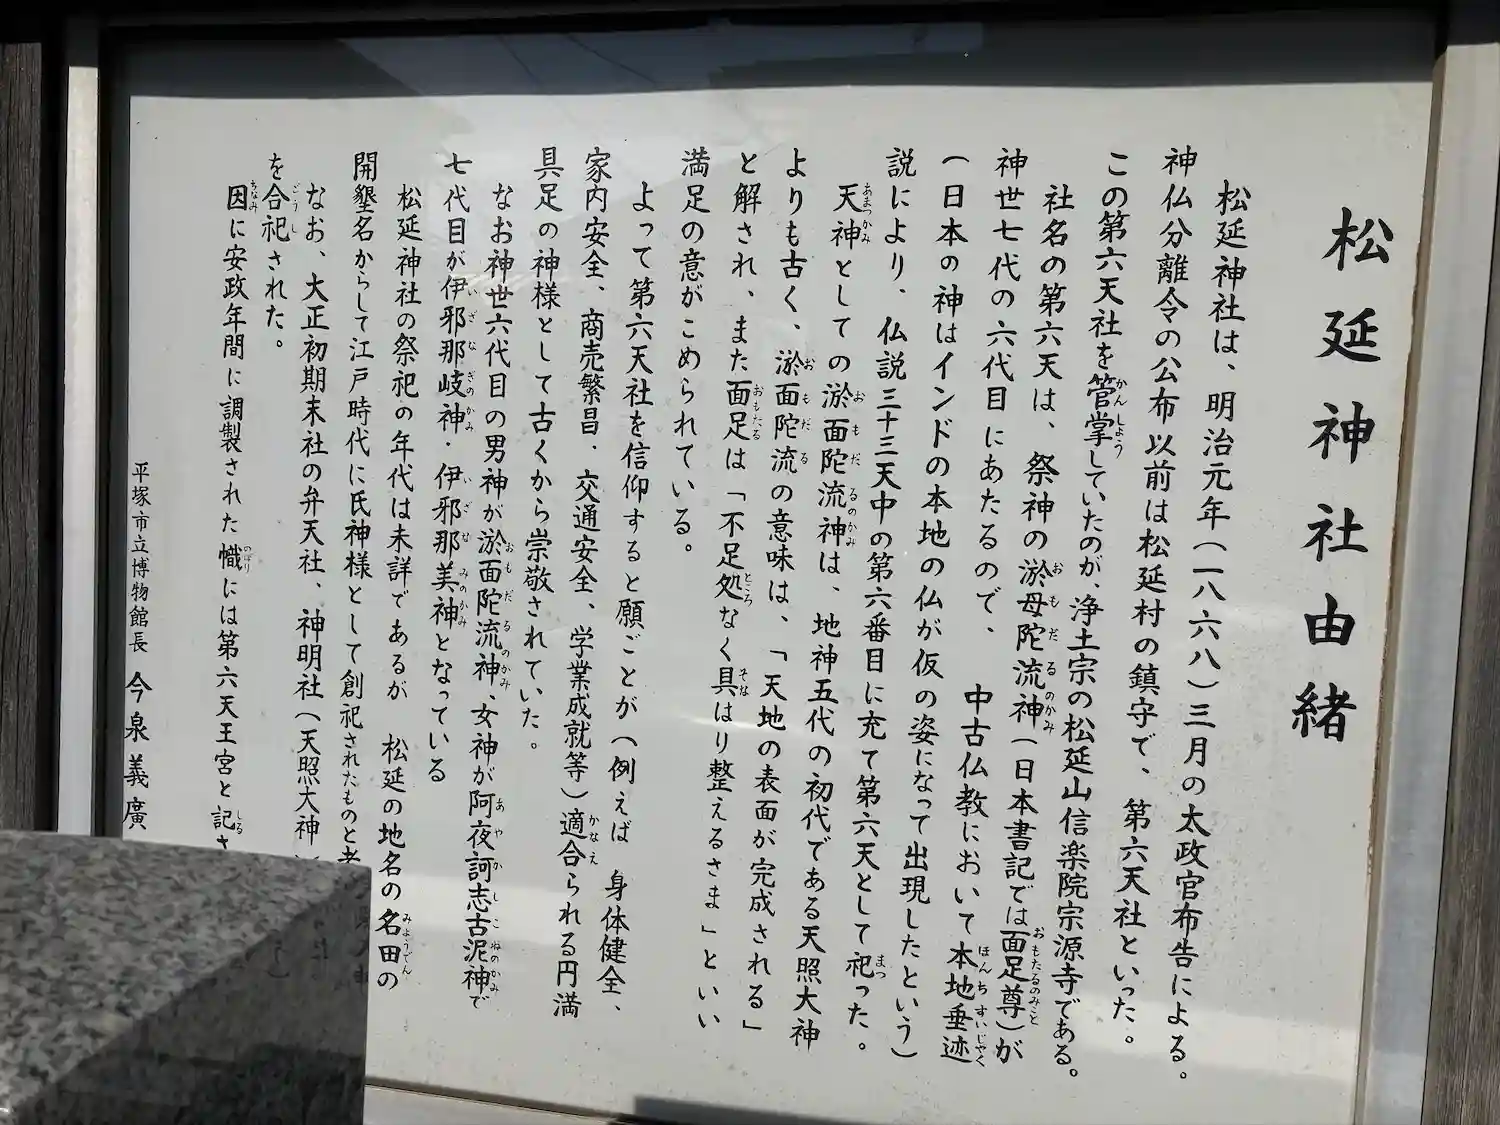 松延神社由緒
松延神社は、明治元年（一八六八）三月の太政官布告による。
神仏分離令の公布以前は松延村の鎮守で、第六天社といった。
この第六天社を管掌していたのが、浄土宗の松延山信楽院宗源寺である。
社名の第六天は、祭神の淤母陀流神（日本書記では面足尊）が
神世七代の六代目にあたるので、中古仏教において本地垂迹
（日本の神はインドの本地の仏が仮の姿になって出現したという）
説により、仏説三十三天中の第六番目に充て第六天として祀った。
天神としての淤面陀流神は、地神五代の初代である天照大神
よりも古く、淤面陀流の意味は、「天地の表面が完成される」
と解され、また面足は「不足処なく具はり整えるさま」といい
満足の意がこめられている。
よって第六天社を信仰すると願ごとが（例えば　身体健全、
家内安全、商売繁昌．交通安全、学業成就等）適合られる円満
具足の神様として古くから崇敬されていた。
なお神世六代目の男神が淤面陀流神、女神が阿夜訶志古泥神で
七代目が伊邪那岐神．伊邪那美神となっている
松延神社の祭祀の年代は未詳であるが　松延の地名の名田の
開墾名からして江戸時代に氏神様として創祀されたものと考
なお、大正初期末社の弁天社、神明社（天照大神
を合祀された。
因に安政年間に調製された幟には第六天王宮と記さ
平塚市立博物館長　今泉義廣